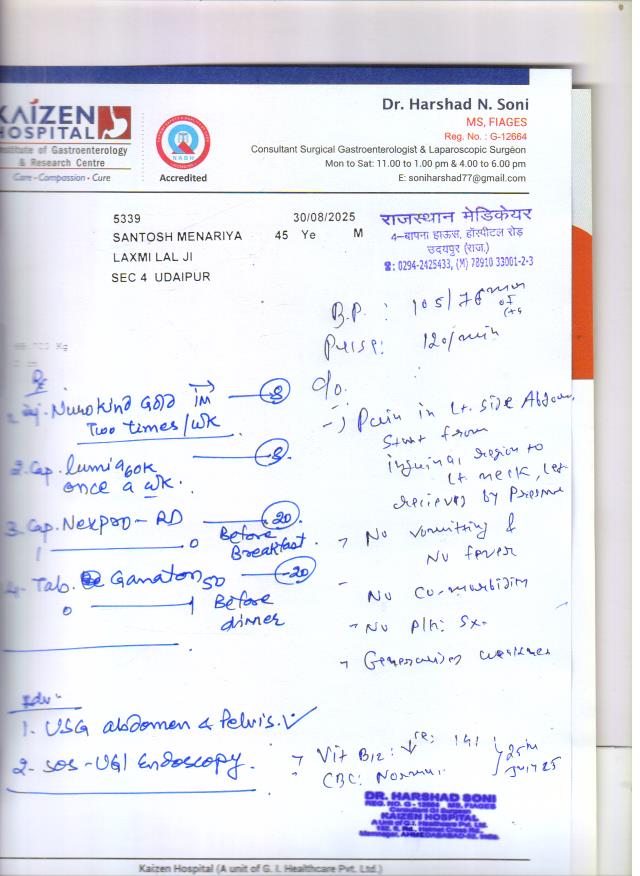 KAIZEN
HOSPITAL
Institute of Gastroenterology
& Research Centre
Care - Compassion - Cure
NABH
Accredited
Dr. Harshad N. Soni
MS, FIAGES
Reg. No. : G-12664
Consultant Surgical Gastroenterologist & Laparoscopic Surgeon
Mon to Sat: 11.00 to 1.00 pm & 4.00 to 6.00 pm
E: soniharshad77@gmail.com
5339 30/08/2025
SANTOSH MENARIYA 45 Ye M
LAXMI LAL JI
SEC 4 UDAIPUR
राजस्थान मेडिकेयर
4-बापना हाऊस, हॉस्पीटल रोड़
उदयपुर (राज.)
☎: 0294-2425433, (M) 78910 33001-2-3
B.P. : 105/76 mm of
Pulse: 120/min
Rx
1. Inj. Nurokind Gold IM 8
Two times/wk
2. Cap. lumia 60k 8
once a wk.
3. Cap. Nexpro-RD 20
1 0 Before Breakfast.
4. Tab. Ganaton 50 20
0 1 Before dinner
c/o.
-> Pain in Lt. side Abdomen
Start from
inguinal region to
Lt neck, Lt
relieved by Pressure
No vomitting &
No fever
No Co-morbidity
No P/h: Sx.
Generalised weakness
Adv:-
1. USG abdomen & Pelvis. ✓
2. SOS - UGI Endoscopy.
Vit B12: ↓ 141
CBC: Normal
25th July 25
DR. HARSHAD SONI
REG. NO. G - 12664 MS, FIAGES
Consultant GI Surgeon
KAIZEN HOSPITAL
A Unit of G.I. Healthcare Pvt. Ltd.
Memnagar, AHMEDABAD-52, India.
Kaizen Hospital (A unit of G. I. Healthcare Pvt. Ltd.)